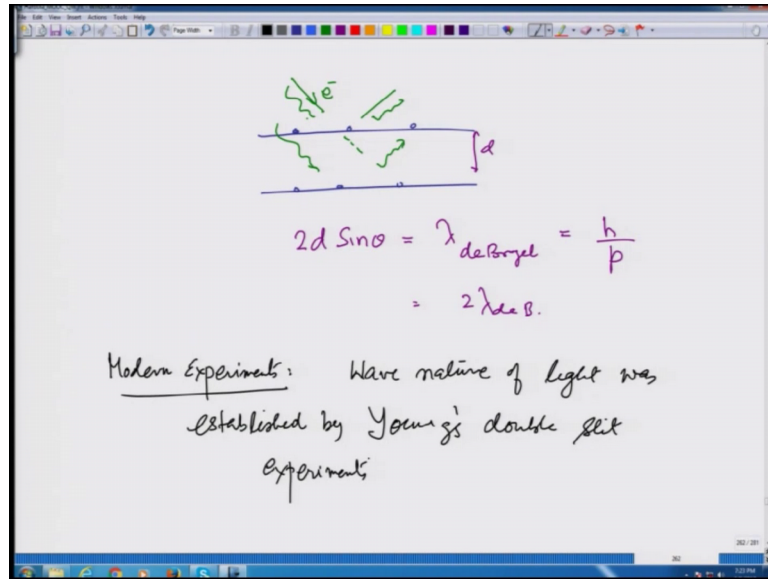 File Edit View Insert Actions Tools Help
Page Width
B
e⁻
d
2d Sinθ = λ deBrogel = h/p
= 2λ de B.
Modern Experiments: Wave nature of light was
established by Young's double slit
experiments
262 / 281
262
7:23 PM